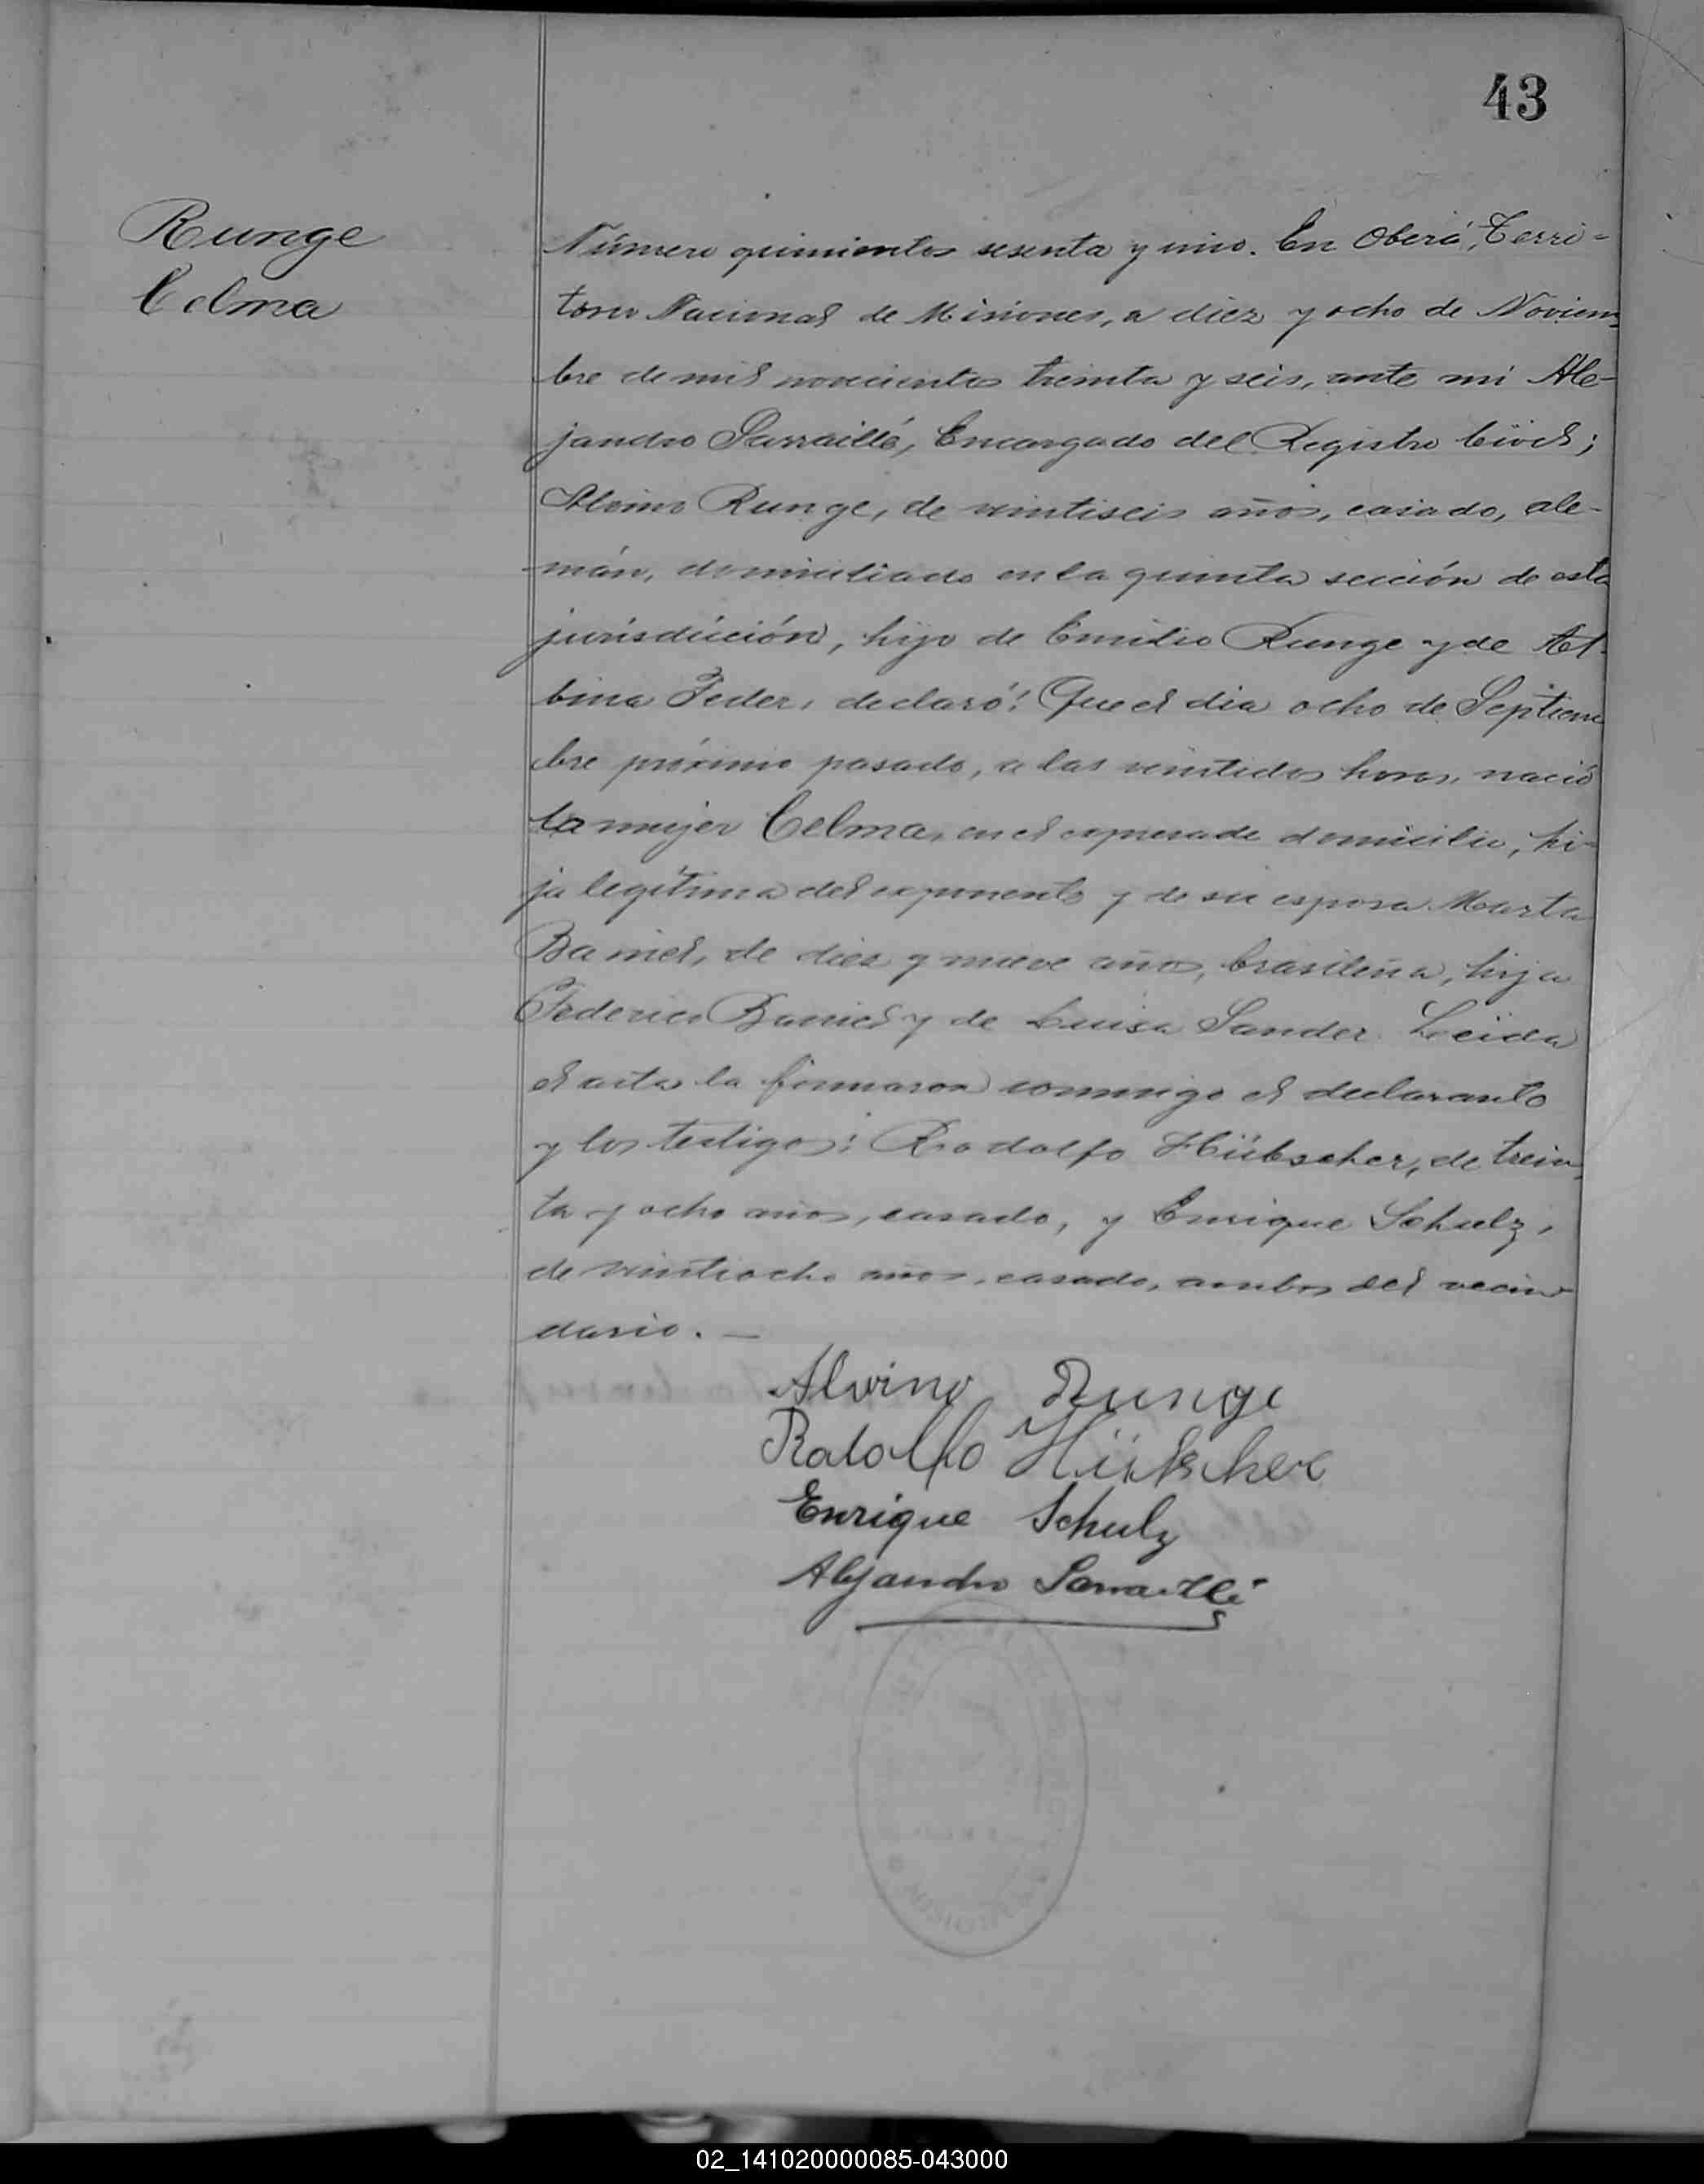 43
Runge
Celma
Número quinientos sesenta y uno. En Oberá, Terri=
torio Nacional de Misiones, a diez y ocho de Noviem-
bre de mil novecientos treinta y seis, ante mi Ale-
jandro Sarraillé, Encargado del Registro Civil;
Alvino Runge, de veintiseis años, casado, ale-
mán, domiciliado en la quinta sección de esta
jurisdicción, hijo de Emilio Runge y de Al-
bina Feder, declaró: Que el dia ocho de Septiem
bre próximo pasado, a las veintidos horas, nació
la mujer Celma, en el expresado domicilio, hi-
ja legítima del exponente y de su esposa Marta
Baniel, de diez y nueve años, brasileña, hija
Federico Baniel y de Luisa Sander. Leída
el acta la firmaron conmigo el declarante
y los testigos: Rodolfo Hübscher, de trein
ta y ocho años, casado, y Enrique Schulz,
de veintiocho años, casado, ambos del vecin-
dario. —
Alvino Runge
Rodolfo Hübscher
Enrique Schulz
Alejandro Sarraillé
02_141020000085-043000